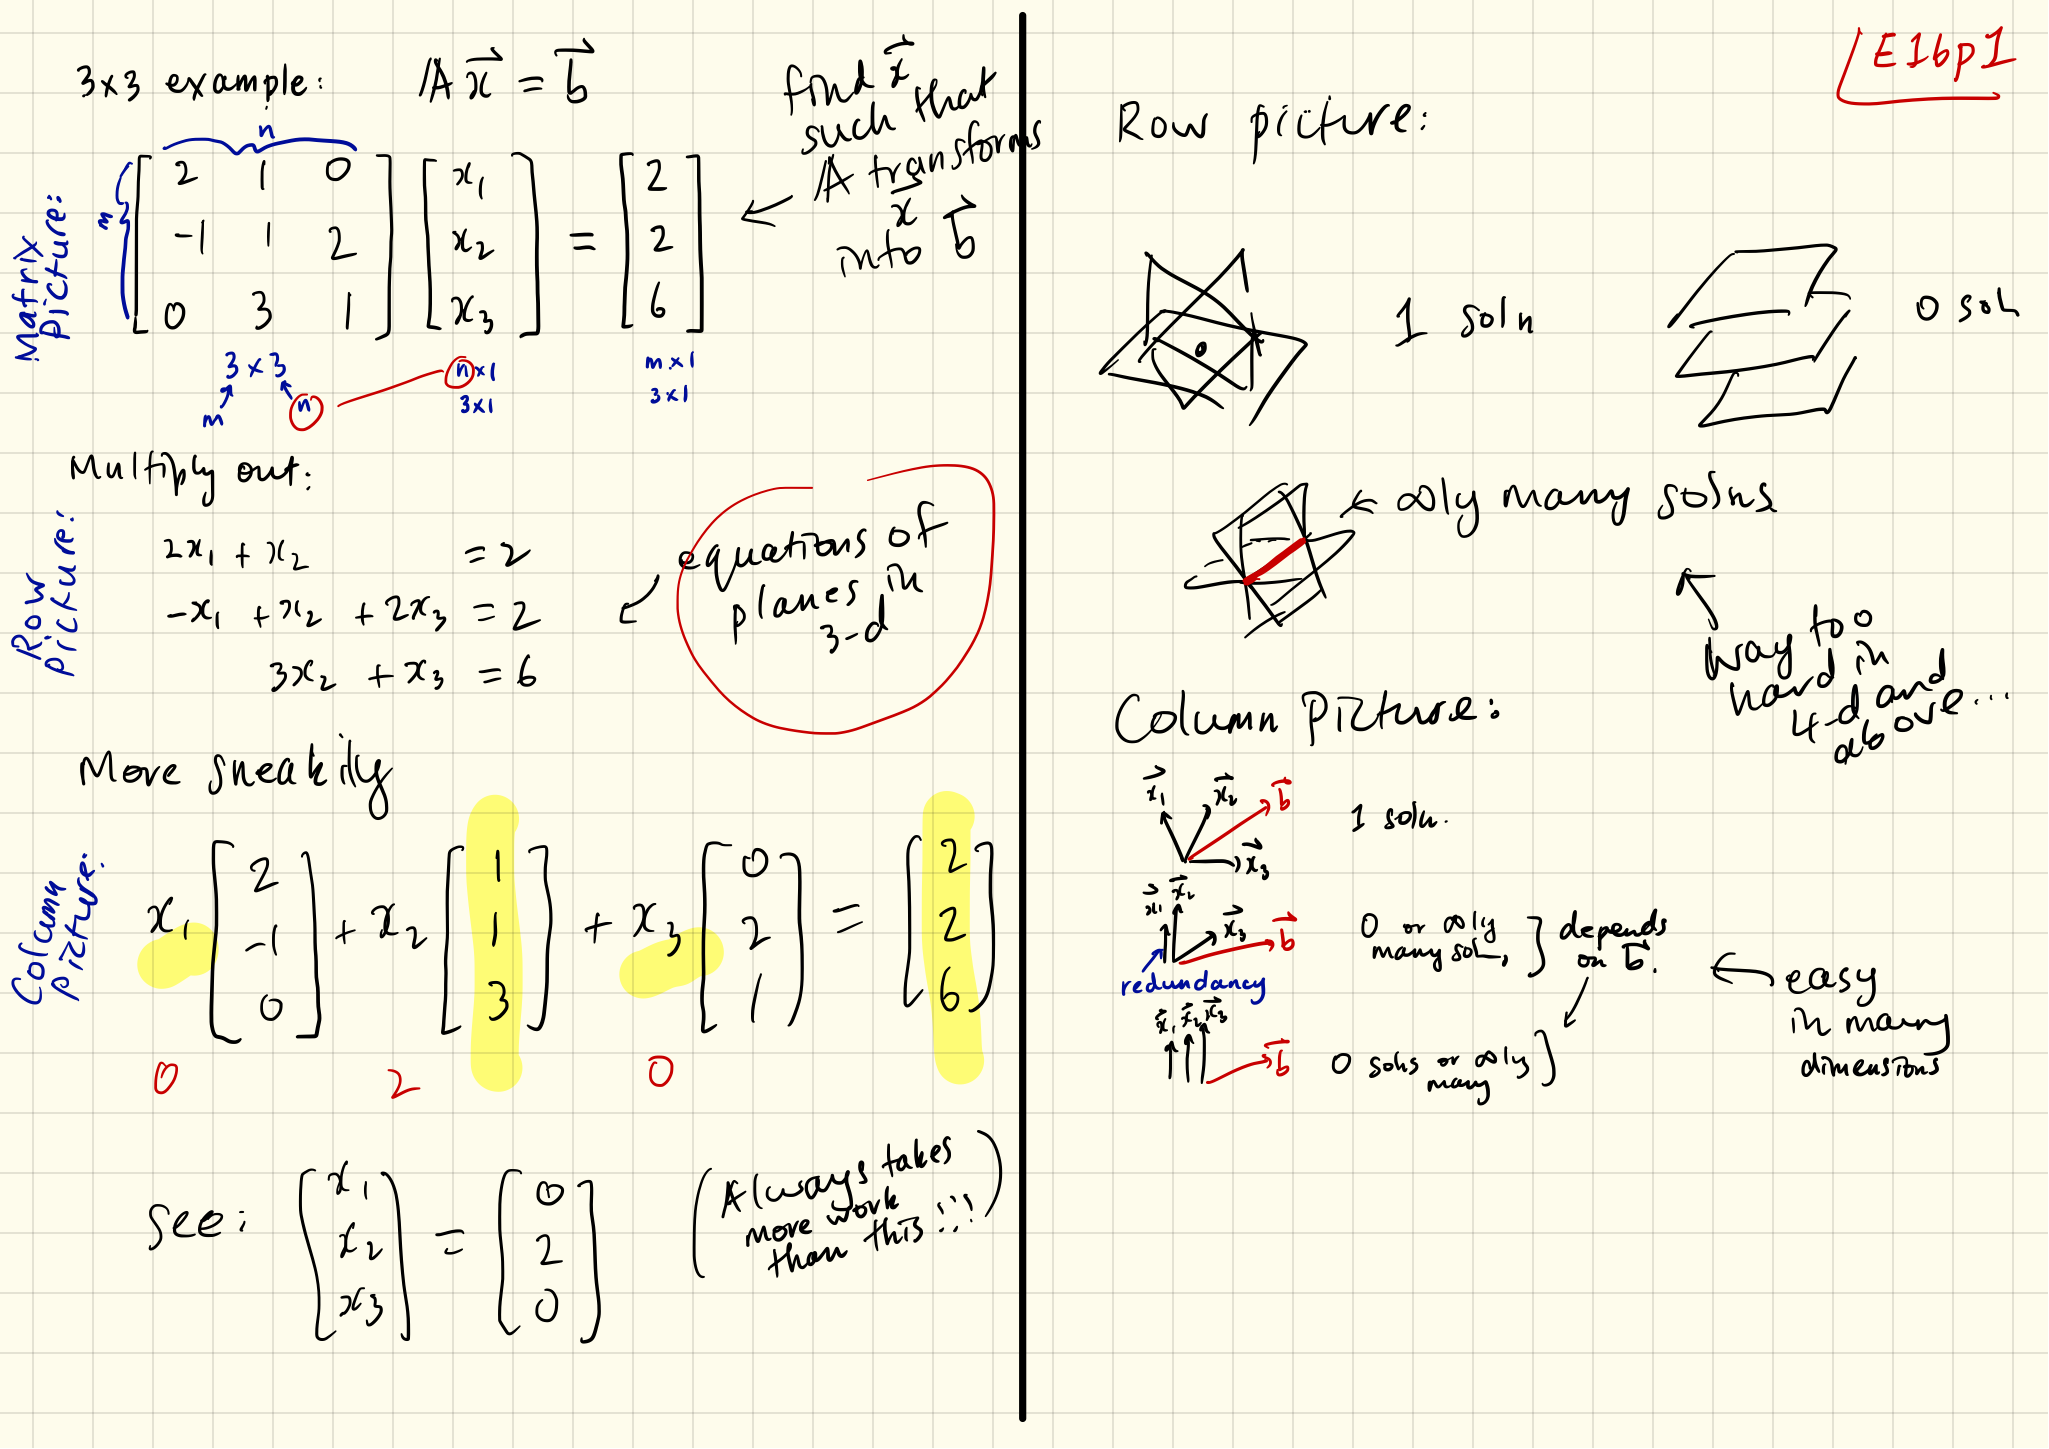 E16p1
3x3 example: A x = b
n
m
Matrix Picture:
[ 2 1 0 ] [ x1 ] = [ 2 ]
[ -1 1 2 ] [ x2 ] = [ 2 ]
[ 0 3 1 ] [ x3 ] = [ 6 ]
3 x 3
m n
n x 1
3 x 1
m x 1
3 x 1
← find x
such that
A transforms
x
into b
Multiply out:
Row Picture:
2x1 + x2 = 2
-x1 + x2 + 2x3 = 2
3x2 + x3 = 6
equations of
planes in
3-d
More sneakily
Column Picture:
x1 [ 2 -1 0 ] + x2 [ 1 1 3 ] + x3 [ 0 2 1 ] = [ 2 2 6 ]
0 2 0
see: [ x1 x2 x3 ] = [ 0 2 0 ]
(Always takes
more work
than this!!!)
Row picture:
1 soln
0 soln
← ∞ly many solns
way too
hard in
4-d and
above...
Column Picture:
x1 x2 b
x3
1 soln.
x1 x2
x3 b
redundancy
0 or ∞ly
many soln,
depends
on b.
x1 x2 x3
b
0 solns or ∞ly
many
← easy
in many
dimensions